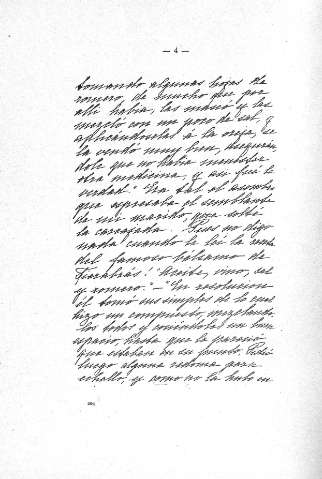 — 4 —
tomando algunas hojas de
romero, de mucho que por
allí había, las mascó y las
mezcló con un poco de sal, y
aplicándoselas á la oreja, se
la vendó muy bien, asegurán
dole que no había menester
otra medicina, y así fué la
verdad." Era tal el asombro
que expresaba el semblante
de mi marido, que solté
la carcajada. ¡Pues no digo
nada cuando le leí la receta
del famoso bálsamo de
Fierabrás! "Aceite, vino, sal
y romero." — "En resolucion
él tomó sus simples de lo cual
hizo un compuesto, mezclando
los todos y cociéndolos un buen
espacio, hasta que le pareció
que estaban en su punto. Pidió
luego alguna redoma para
echallo, y como no la hubo en